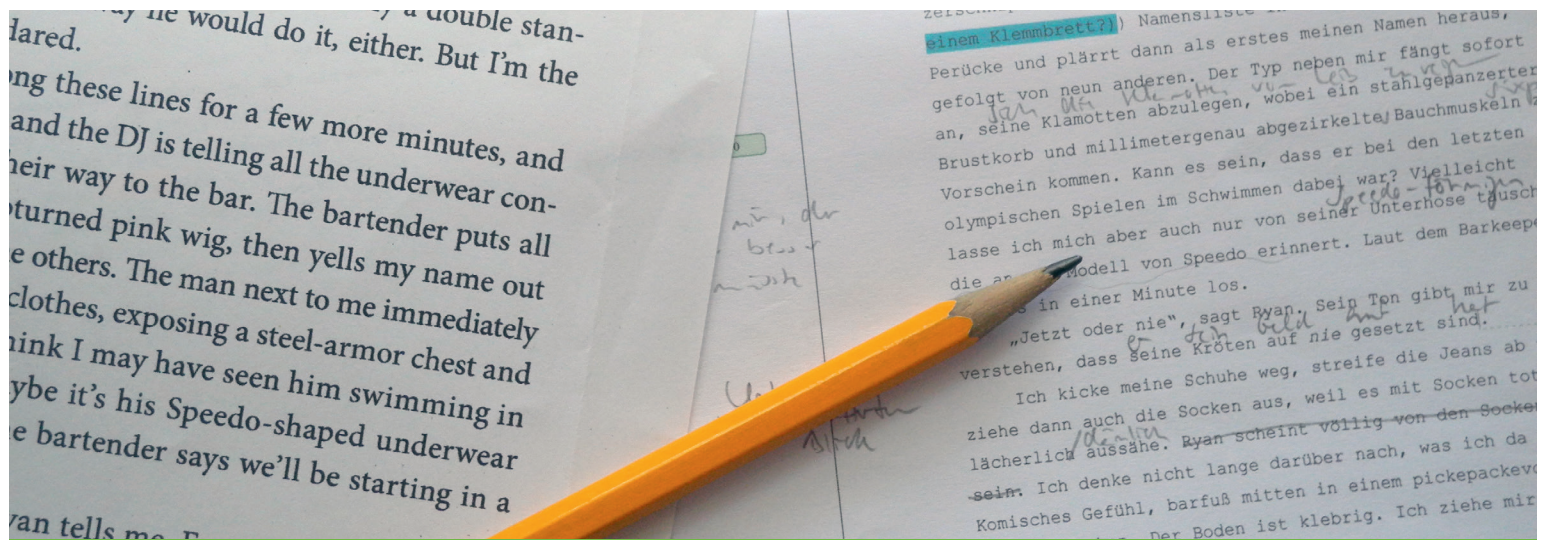 he would do it, either. But I'm the
a double stan-
dared.
ong these lines for a few more minutes, and
and the DJ is telling all the underwear con-
heir way to the bar. The bartender puts all
turned pink wig, then yells my name out
e others. The man next to me immediately
clothes, exposing a steel-armor chest and
hink I may have seen him swimming in
ybe it's his Speedo-shaped underwear
e bartender says we'll be starting in a
van tells me.
mir, der
einem Klemmbrett?)) Namensliste
Perücke und plärrt dann als erstes meinen Namen heraus,
gefolgt von neun anderen. Der Typ neben mir fängt sofort
an, seine Klamotten abzulegen, wobei ein stahlgepanzerter
Brustkorb und millimetergenau abgezirkelte Bauchmuskeln
Vorschein kommen. Kann es sein, dass er bei den letzten
olympischen Spielen im Schwimmen dabei war? Vielleicht
speedo-förmigen
lasse ich mich aber auch nur von seiner Unterhose täusch
die Modell von Speedo erinnert. Laut dem Barkeepe
in einer Minute los.
„Jetzt oder nie", sagt Ryan. Sein Ton gibt mir zu
er sein Geld hat
verstehen, dass seine Kröten auf nie gesetzt sind.
Ich kicke meine Schuhe weg, streife die Jeans ab
ziehe dann auch die Socken aus, weil es mit Socken tot
dämlich
lächerlich aussähe. Ryan scheint völlig von den Socken
sein. Ich denke nicht lange darüber nach, was ich da
Komisches Gefühl, barfuß mitten in einem pickepackevo
Der Boden ist klebrig. Ich ziehe mir